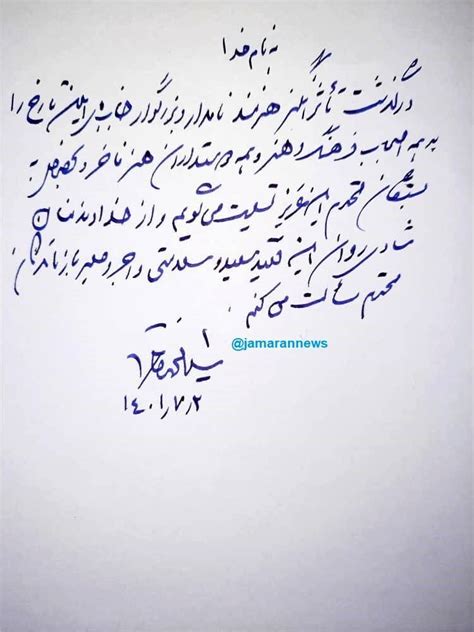 به نام خدا
درگذشت تأثرانگیز هنرمند نامدار و بزرگوار جناب آقای امین تارخ را
به همه اصحاب فرهنگ و هنر و همه دوستداران هنر فاخر و بخصوص به
بستگان محترم این عزیز تسلیت می گویم و از خداوند منان
شادی روان این فقید سعید و سلامتی و اجر و صبر بازماندگان
محترم مسألت می کنم.
@jamarannews
سید محمد خاتمی
۱۴۰۱/۷/۲